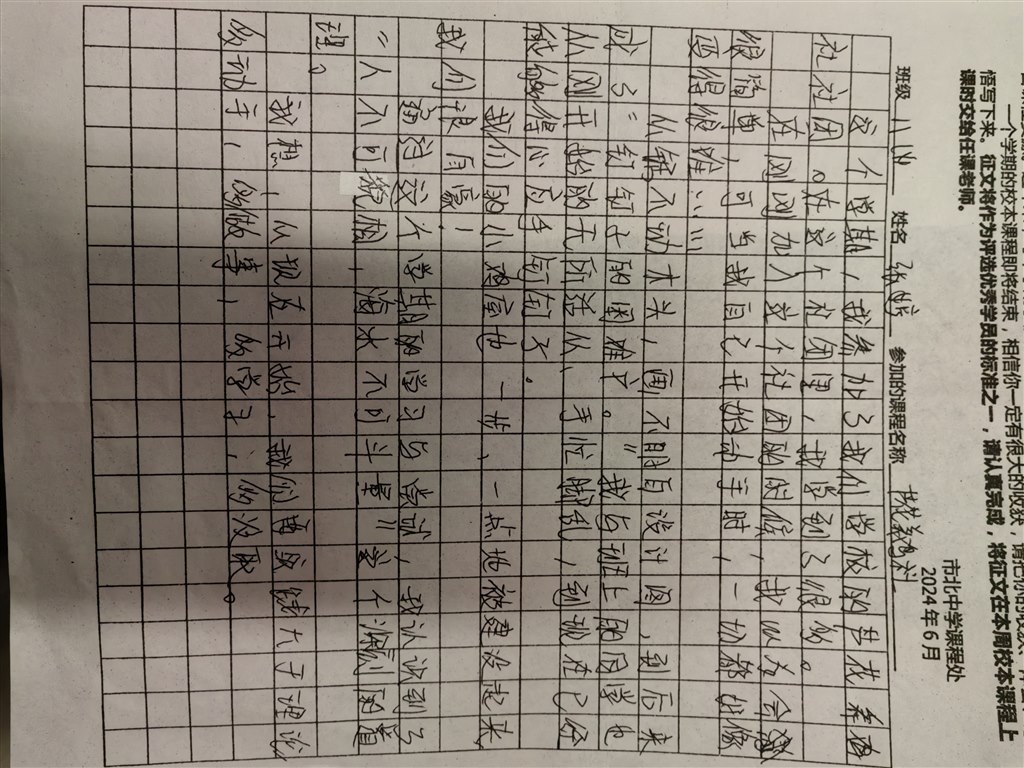 一个学期的校本课程即将结束，相信你一定有很大的收获，请把你的收获
悟写下来。征文将作为评选优秀学员的标准之一，请认真完成，将征文在本周校本课程上
课时交给任课老师。
市北中学课程处
2024年6月
班级 八 姓名 张 参加的课程名称 技
这个学期，我参加了我们学校的梦花
社社团。在这个社团里，我学到了很多。
在刚刚加入这个社团的时候，我以为会
很简单，可当我自己开始动手时，一切都好像
变得很难……
从锯不动木头，画不明白设计图，到后来
成了“钉钉子的困难户。”我与班上的同学也
从刚开始的无所适从、手忙脚乱，到现在已经
做的得心应手
我们的小邀房也一步、一点地被建设起来
我们很自豪！
通过这个学期的学习与尝试，我认识到了
“人不可貌相，海水不可斗量”这个深刻的道
理。
我想，从现在开始，我们要故练大于理论
多动手，多做事，多学习，多汲取。